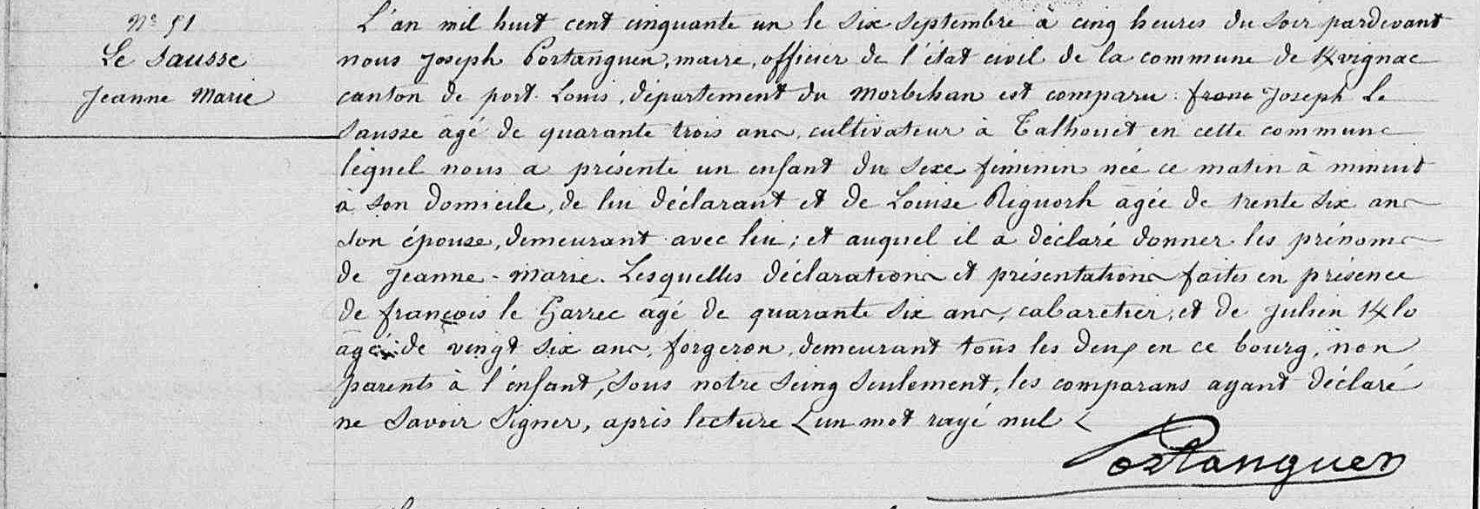 N° 51
Le Sausse
Jeanne Marie
L'an mil huit cent cinquante un le six septembre à cinq heures du soir pardevant
nous Joseph Portanguen, maire, officier de l'état civil de la commune de Kvignac
canton de port-Louis, département du Morbihan est comparu franc Joseph Le
Sausse agé de quarante trois ans, cultivateur à Talhouet en cette commune
lequel nous a présenté un enfant du sexe féminin née ce matin à minuit
à son domicile, de lui déclarant et de Louise Riguorh agée de trente six ans
son épouse, demeurant avec lui; et auquel il a déclaré donner les prénoms
de Jeanne-Marie. Lesquelles déclarations et présentations faites en présence
de françois le Garrec agé de quarante six ans, cabaretier, et de Julien Klo
agé de vingt six ans, forgeron, demeurant tous les deux en ce bourg, non
parents à l'enfant, sous notre seing seulement, les comparans ayant déclaré
ne savoir signer, après lecture un mot rayé nul
Portanguen